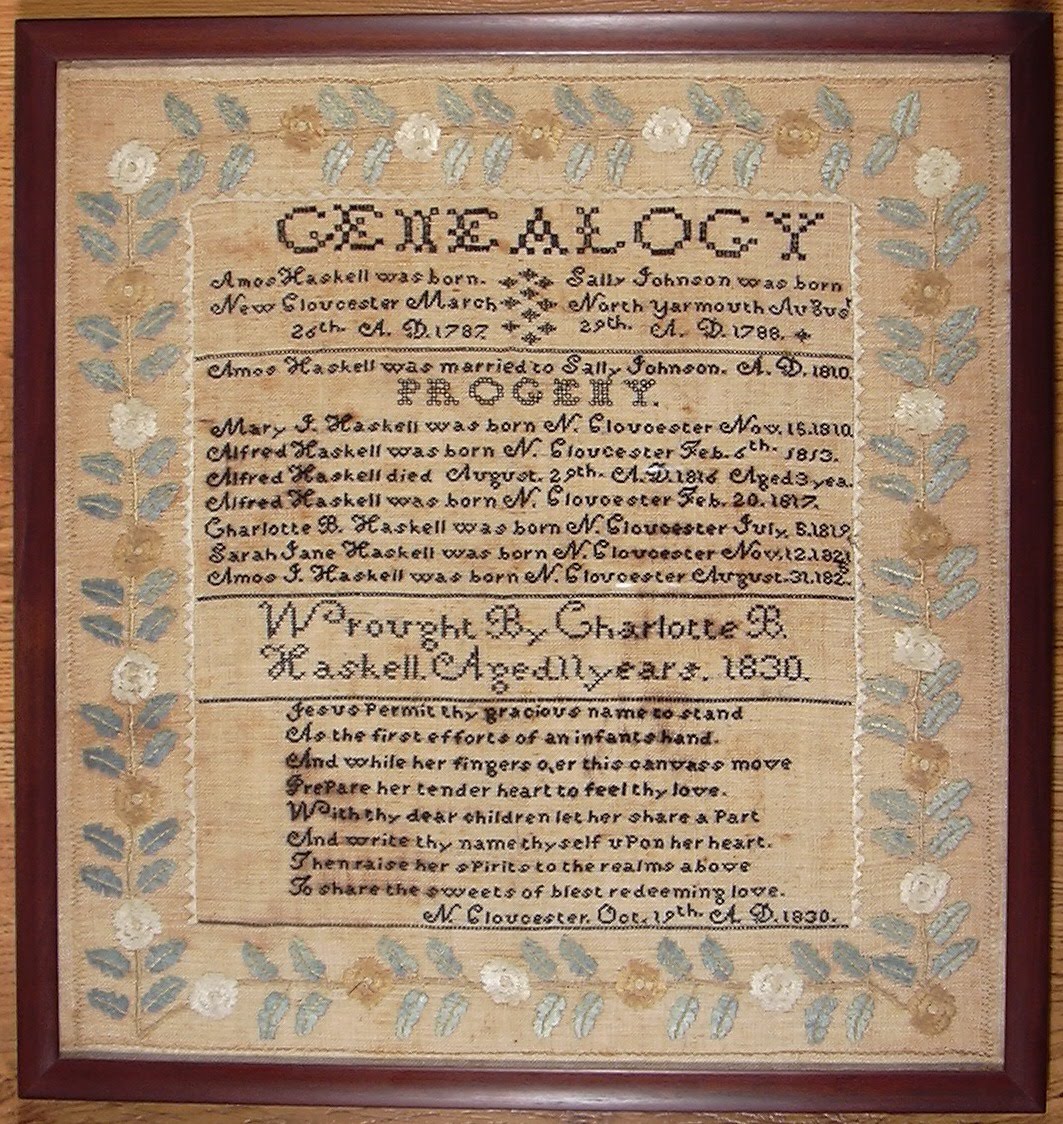 GENEALOGY
Amos Haskell was born.
New Gloucester March
26th. A. D. 1787.
Sally Johnson was born
North Yarmouth August
29th. A. D. 1788.
Amos Haskell was married to Sally Johnson. A. D. 1810.
PROGENY.
Mary J. Haskell was born N. Gloucester Nov. 15. 1810.
Alfred Haskell was born N. Gloucester Feb. 6th. 1813.
Alfred Haskell died August. 29th. A. D. 1816 Aged 3 yea.
Alfred Haskell was born N. Gloucester Feb. 20. 1817.
Charlotte B. Haskell was born N. Gloucester July. 5. 1819
Sarah Jane Haskell was born N. Gloucester Nov. 12. 1821
Amos J. Haskell was born N. Gloucester August. 31. 182
Wrought By Charlotte B.
Haskell. Aged 11 years. 1830.
Jesus Permit thy gracious name to stand
As the first efforts of an infants hand.
And while her fingers o,er this canvass move
Prepare her tender heart to feel thy love.
With thy dear children let her share a Part
And write thy name thyself upon her heart.
Then raise her spirits to the realms above
To share the sweets of blest redeeming love.
N. Gloucester. Oct. 19th. A. D. 1830.